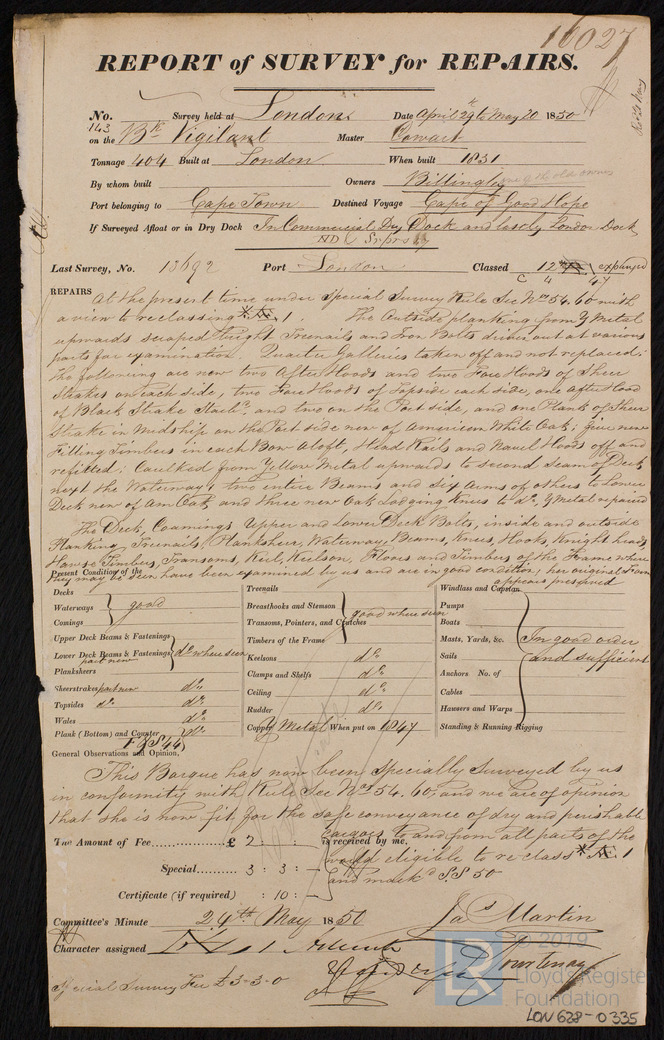 16027
REPORT of SURVEY for REPAIRS.
No. 143 Survey held at London Date April 29th to May 20 1850
on the Bk Vigilant Master Cowart
Tonnage 404 Built at London When built 1831
By whom built Owners Billingley
Port belonging to Cape Town Destined Voyage Cape of Good Hope
If Surveyed Afloat or in Dry Dock In Commercial Dry Dock and lastly London Dock
Last Survey, No. 13692 Port London Classed 12 expired
C 4 47
REPAIRS At the present time under Special Survey Rule Sec Nos 54.60 with
a view to reclassing 1. The Outside planking from Y Metal
upwards scraped bright Treenails and Iron Bolts driven out at various
parts for examination Quarter Galleries taken off and not replaced.
The following are new two After Hoods and two Fore Hoods of Sheer
Strakes on each side, two Fore Hoods of Topside each side, one after Hood
of Black Strake Starbd. and two on the Port side, and one Plank of Sheer
Strake in Midship on the Port side new of American White Oak; five new
Filling Timbers in each Bow Aloft, Head Rails and Navel Hoods off and
refitted; Caulked from Yellow Metal upwards to second seam of Deck
next the Waterways two entire Beams and Six Arms of others to Lower
Deck new of Am Oak, and three new Oak Lodging Knees to do. Y Metal repaired
The Deck, Coamings Upper and Lower Deck Bolts, inside and outside
Planking, Treenails, Planksheers, Waterways, Beams, Knees, Hooks, Knight heads
Hawse Timbers, Transoms, Keel, Keelson, Floors and Timbers of the Frame where
they may be seen have been examined by us and are in good condition; her original Form
appears preserved
Present Condition of the
Decks
Waterways good
Comings
Upper Deck Beams & Fastenings
Lower Deck Beams & Fastenings part new do where seen
Planksheers
Sheerstrakes part new do
Topsides do do
Wales do
Plank (Bottom) and Counter do
F & S 44
Treenails
Breasthooks and Stemson
Transoms, Pointers, and Crutches good where seen
Timbers of the Frame
Keelsons do
Clamps and Shelfs do
Ceiling do
Rudder do
Copper Y Metal When put on 1847
Windlass and Capstan
Pumps
Boats
Masts, Yards, &c. In good order
Sails and sufficient
Anchors No. of
Cables
Hawsers and Warps
Standing & Running Rigging
General Observations and Opinion,
This Barque has now been specially Surveyed by us
in conformity with Rule Sec Nos 54.60, and we are of opinion
that she is now fit for the safe conveyance of dry and perishable
cargoes to and from all parts of the
world eligible to reclass 1
and mark'd S.S 50
The Amount of Fee............£ 2 : : is received by me,
Special........... 3 : 3 : –
Certificate (if required) : 10 : –
Jas Martin
Committee's Minute 24th May 1850
Character assigned
Courtenay
Special Survey Fee £3-3-0
© 2019
Lloyd's Register
Foundation
LON 628-0335